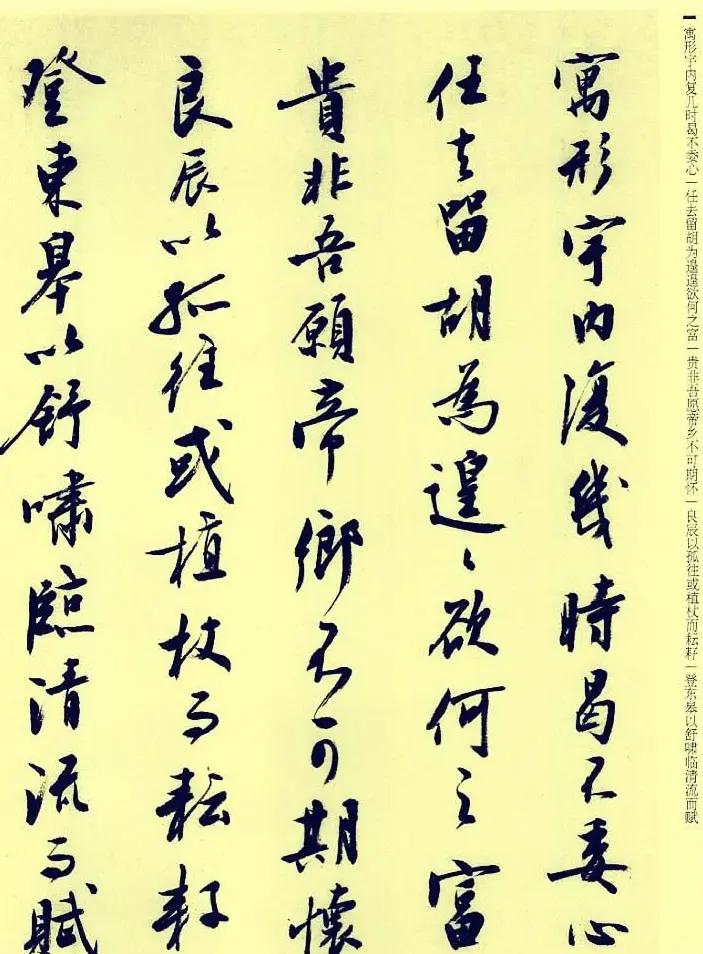 寓形宇内復幾時曷不委心
任去留胡為遑〻欲何之富
貴非吾願帝鄉不可期懷
良辰以孤往或植杖而耘耔
登東皋以舒嘯臨清流而賦
寓形宇内复几时曷不委心｜任去留胡为遑遑欲何之富｜贵非吾愿帝乡不可期怀｜良辰以孤往或植杖而耘耔｜登东皋以舒啸临清流而赋